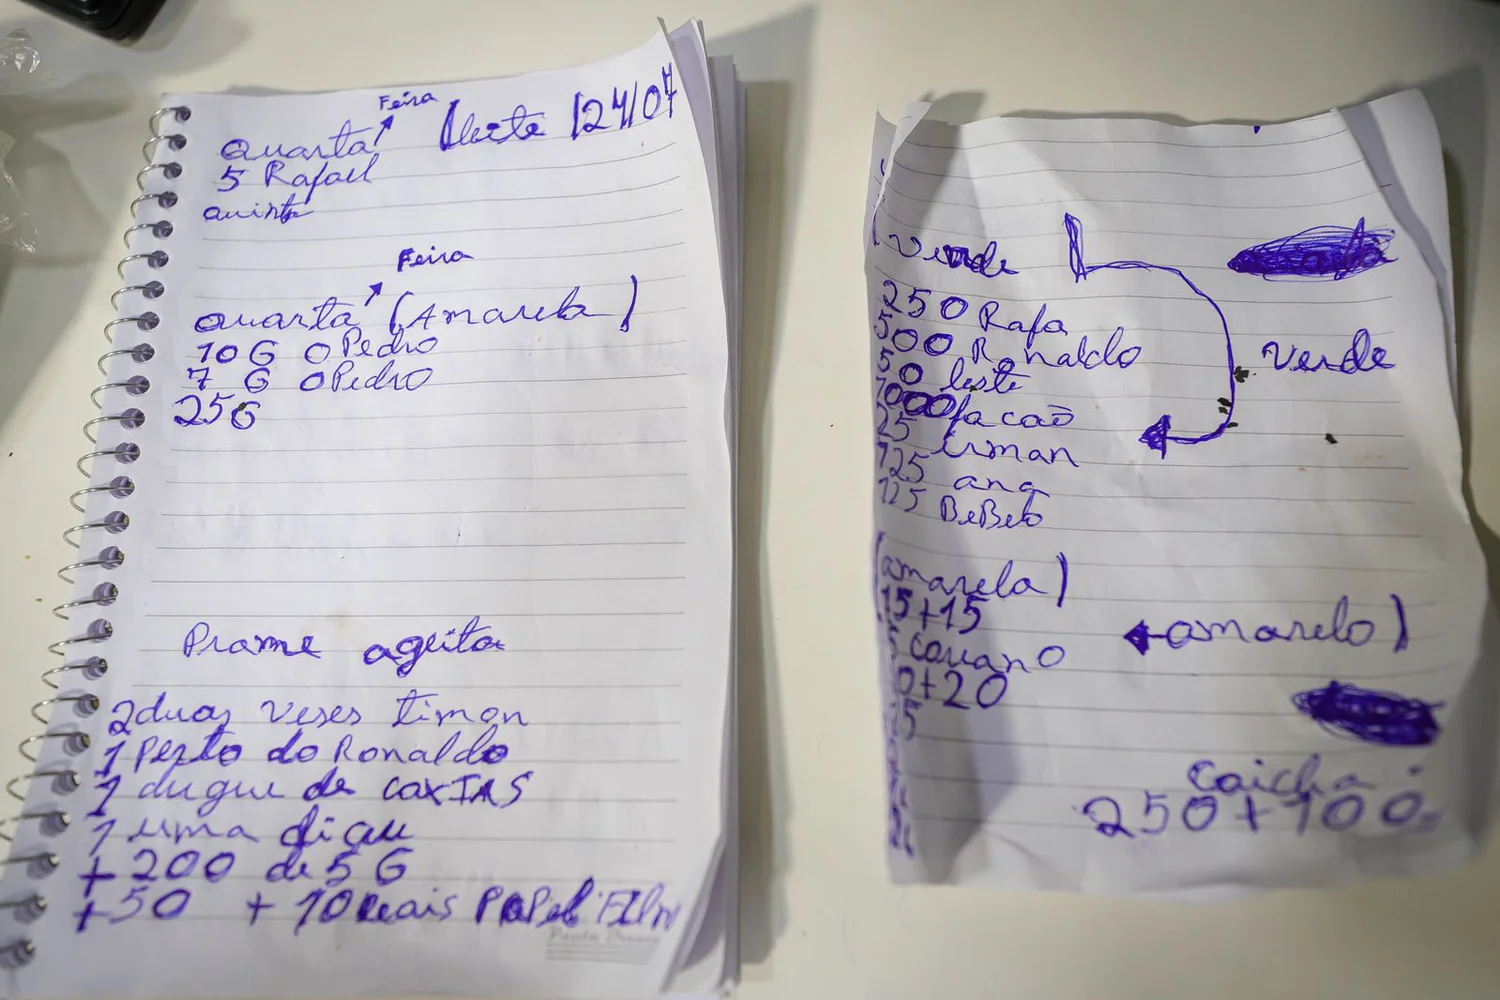 Feira
quarta (leste 124/07
5 Rafael
quinta
Feira
quarta (Amarela)
10 G o Pedro
7 G o Pedro
25G
Prame ageita
2 duas veses timon
1 Perto do Ronaldo
1 duque de caxIAS
1 uma diçeu
+ 200 de 5 G
+50 + 10 reais PAPel FIlm
(Vende
250 Rafa
500 Ronaldo
50 leste
1000 facaõ
25 irman
125 ana
125 BeBeto
Verde
(amarela)
15+15
5 couano
0+20
5
amarelo)
caicha
250+100